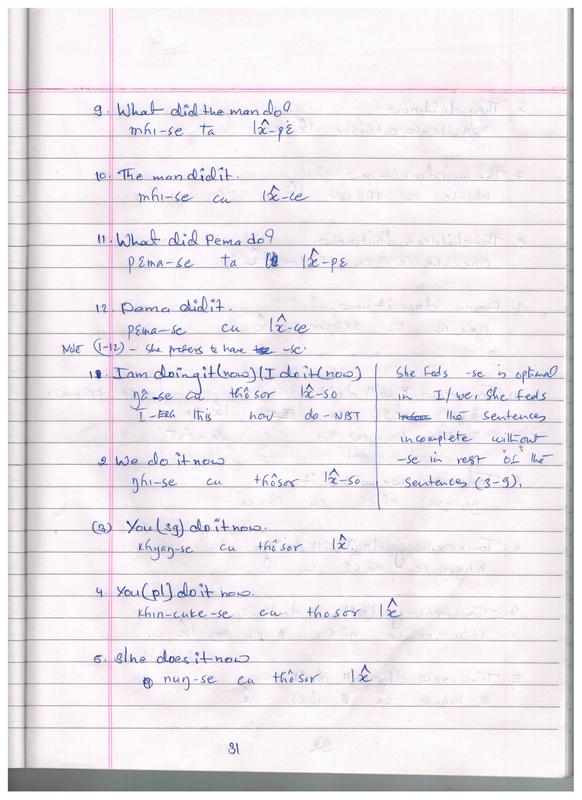 9. What did the man do?
mhı-se ta lx̂-pɛ
10. The man did it.
mhı-se cu lx̂-ce
11. What did Pema do?
pɛma-se ta lx̂-pɛ
12. Pema did it.
pɛma-se cu lx̂-ce
Note (1-12) - She prefers to have -se.
1. I am doing it (now) (I do it (now)
ŋâ-se cu thôsor lx̂-so
I-ERG It is now do-NPST
She feels -se is optional
in I/we. She feels
the sentences
incomplete without
-se in rest of the
sentences (3-9).
2. We do it now
ŋhı-se cu thôsor lx̂-so
(3) You (sg) do it now.
khyaŋ-se cu thôsor lx̂.
4. You (pl) do it now.
khin-cuke-se cu thosor lx̂
5. S/he does it now
nuŋ-se cu thôsor lx̂
31